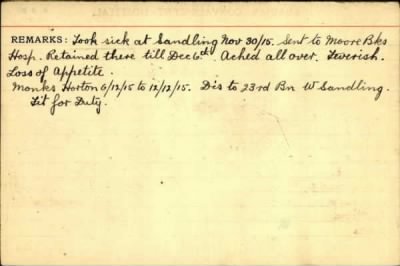 REMARKS: Took sick at Sandling Nov 30/15. Sent to Moore Bks
Hosp. Retained there till Dec 6th. Ached all over. Feverish.
Loss of Appetite.
Monks Horton 6/12/15 to 12/12/15. Dis to 23rd Bn W Sandling.
Fit for Duty.